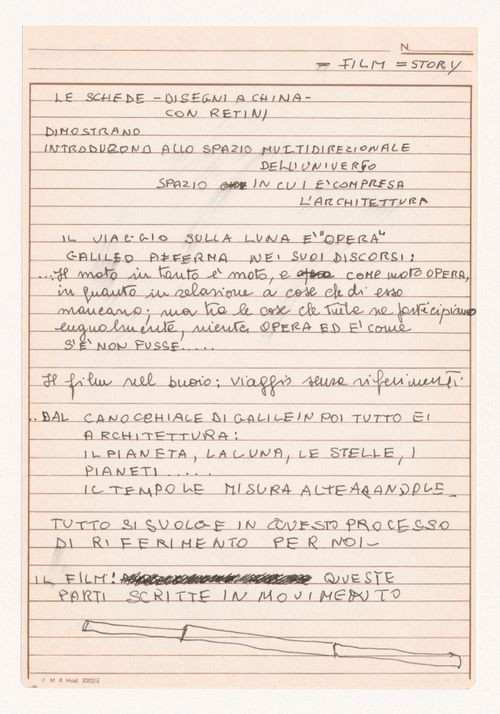 N.
= FILM = STORY
LE SCHEDE - DISEGNI A CHINA -
CON RETINI
DIMOSTRANO
INTRODUCONO ALLO SPAZIO MULTIDIREZIONALE
DELL'UNIVERSO
SPAZIO IN CUI E' COMPRESA
L'ARCHITETTURA
IL VIAGGIO SULLA LUNA E' "OPERA"
GALILEO AFFERMA NEI SUOI DISCORSI:
...Il moto in tanto è moto, e COME MOTO OPERA,
in quanto in relazione a cose che di esso
mancano; ma tra le cose che tutte ne participiano
engualmente, niente OPERA ED E' COME
S'E' NON FUSSE.....
Il film nel buio: viaggio senza riferimenti.
..DAL CANOCCHIALE DI GALILEI IN POI TUTTO E'
ARCHITETTURA:
IL PIANETA, LA LUNA, LE STELLE, I
PIANETI.....
IL TEMPO LE MISURA ALTERANDOLE_
TUTTO SI SVOLGE IN QUESTO PROCESSO
DI RIFERIMENTO PER NOI_
IL FILM! QUESTE
PARTI SCRITTE IN MOVIMENTO
F. M. R. Mod. 3202/E